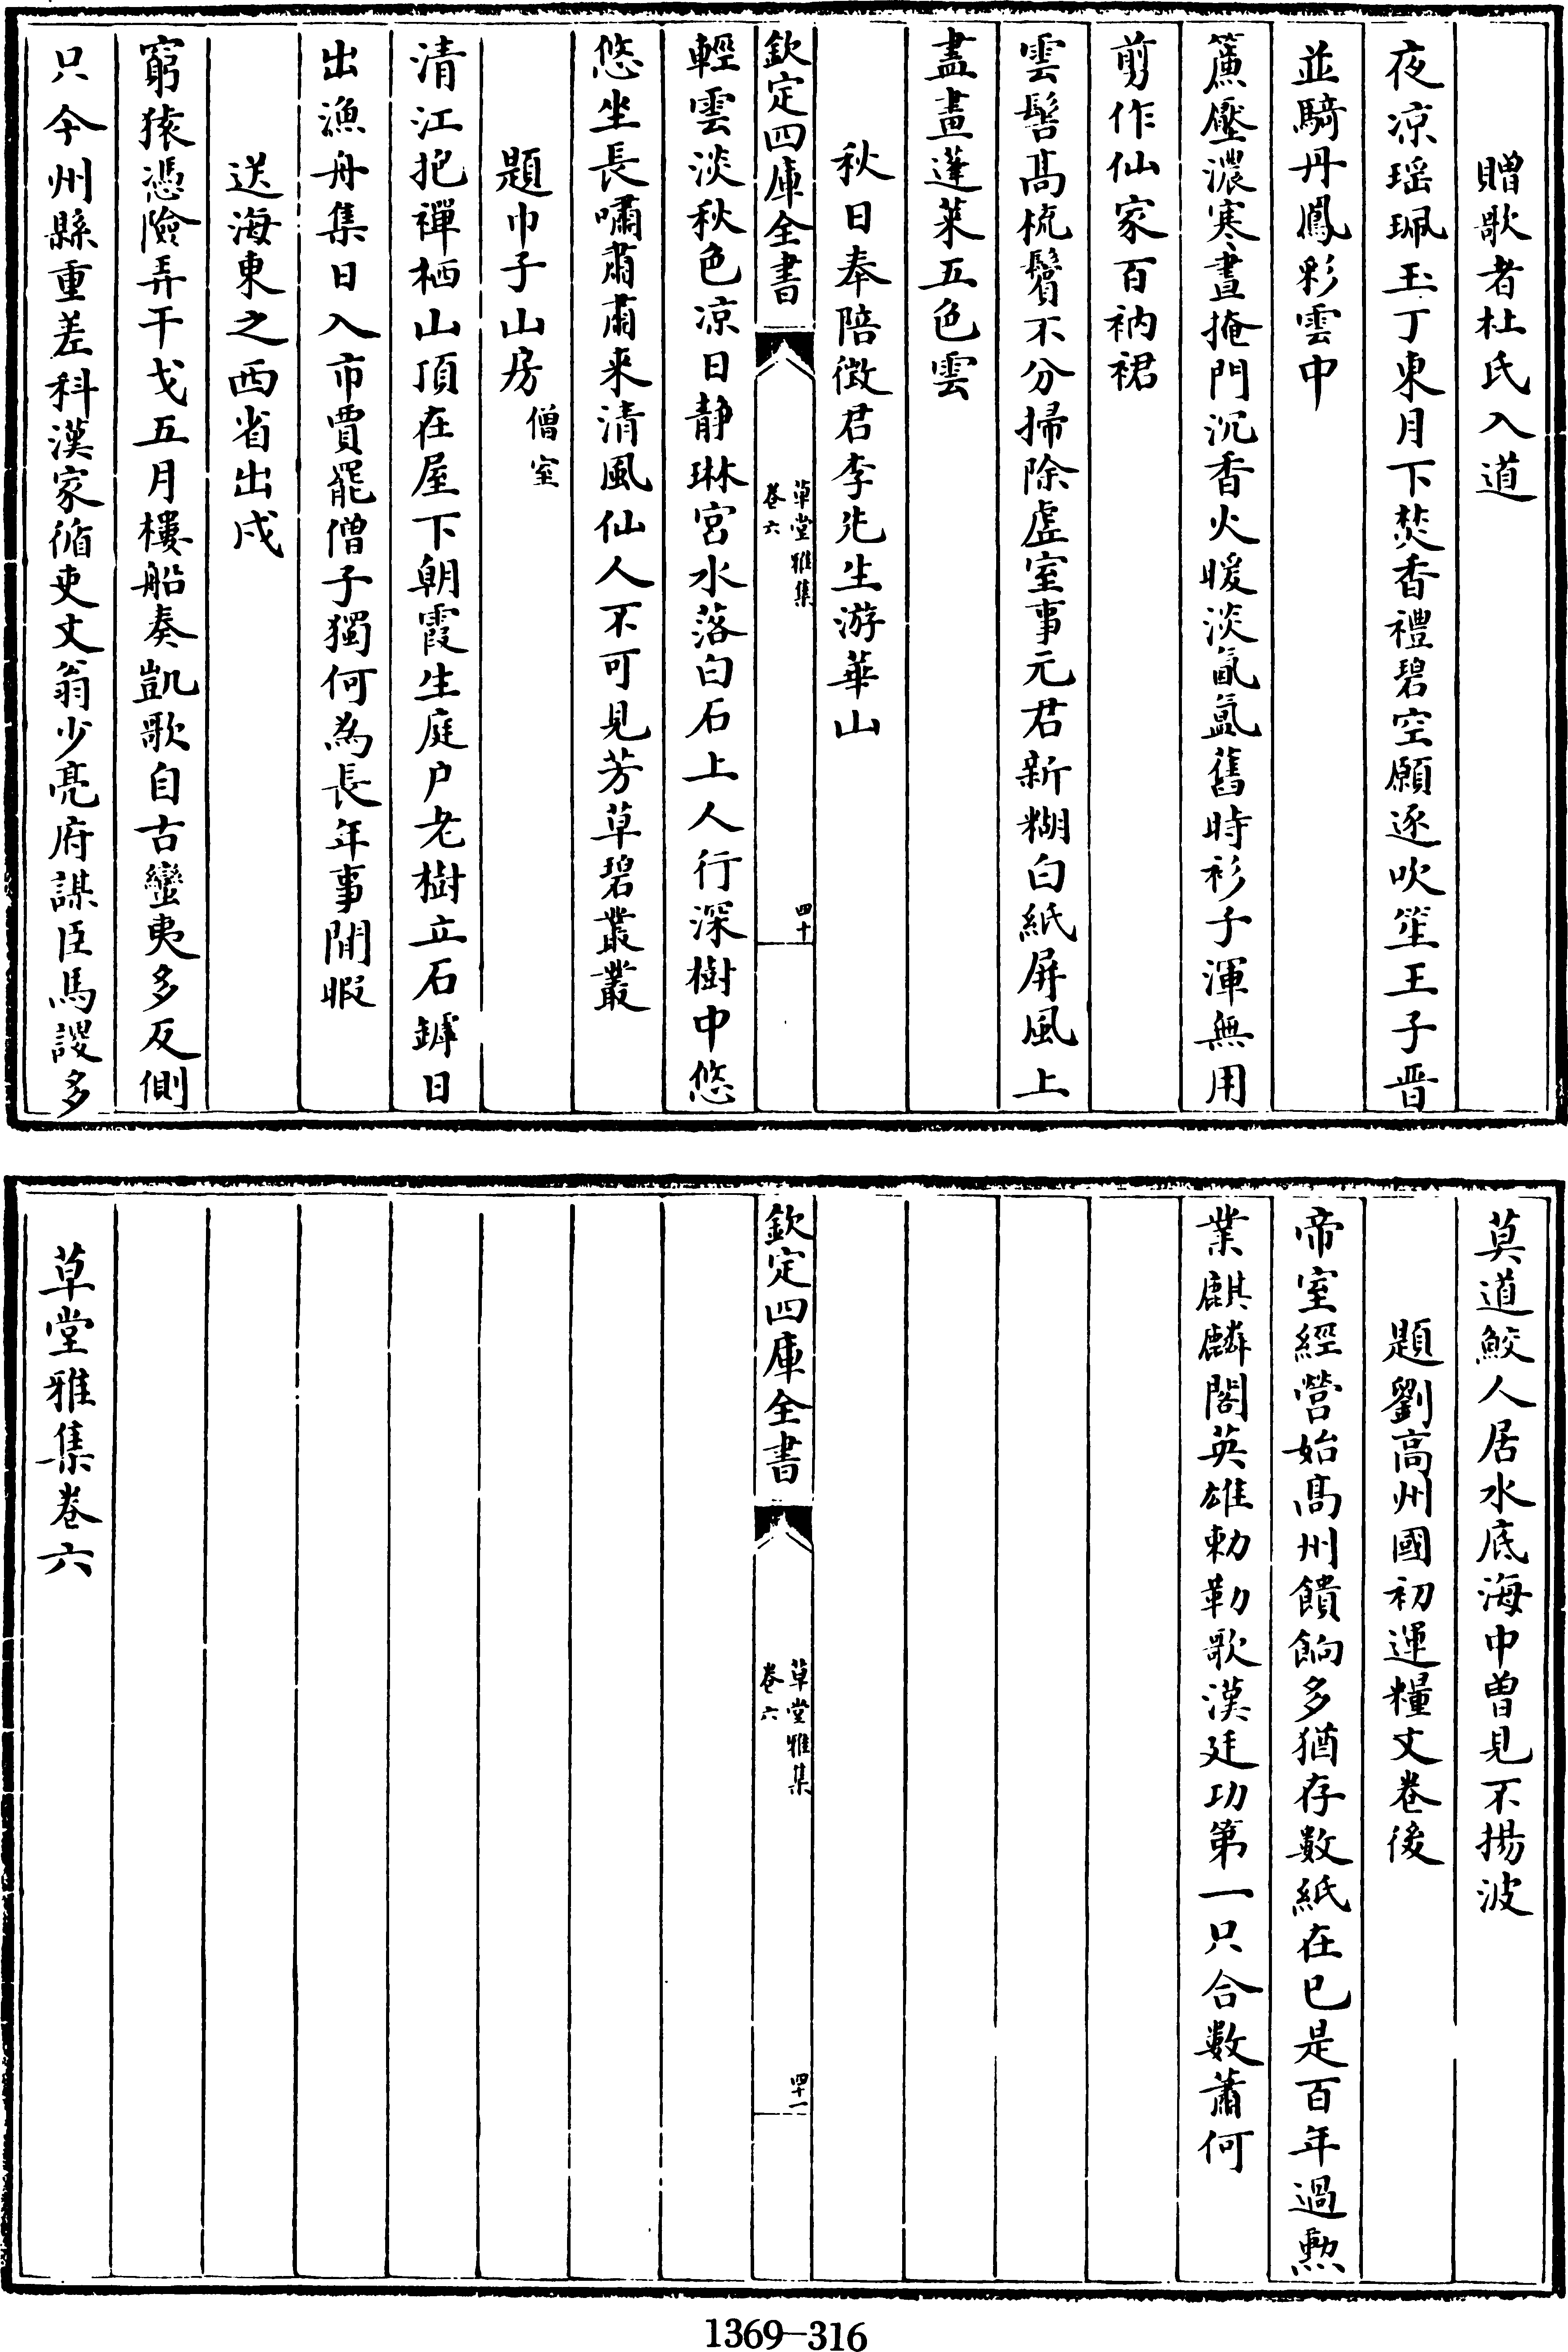 贈歌者杜氏入道
夜凉瑶珮玉丁東月下焚香禮碧空願逐吹笙王子晋
並騎丹鳳彩雲中
簾壓濃寒晝掩門沉香火暖淡氤氲舊時衫子渾無用
剪作仙家百衲裙
雲髻髙梳鬢不分掃除虛室事元君新糊白紙屏風上
盡畫蓬萊五色雲
秋日奉陪徴君李先生游華山
欽定四庫全書
草堂雅集
卷六
四十
輕雲淡秋色凉日静琳宮水落白石上人行深樹中悠
悠坐長嘯肅肅来清風仙人不可見芳草碧叢叢
題巾子山房僧室
清江抱禪栖山頂在屋下朝霞生庭户老樹立石罅日
出漁舟集日入市賈罷僧子獨何為長年事閒暇
送海東之西省出戍
窮猿憑險弄干戈五月樓船奏凱歌自古蠻夷多反側
只今州縣重差科漢家循吏文翁少亮府謀臣馬謖多
莫道鮫人居水底海中曽見不揚波
題劉高州國初運糧文卷後
帝室經營始髙州饋餉多猶存數紙在已是百年過勲
業麒麟閣英雄勅勒歌漢廷功第一只合數蕭何
欽定四庫全書
草堂雅集
卷六
四十一
草堂雅集卷六
1369-316